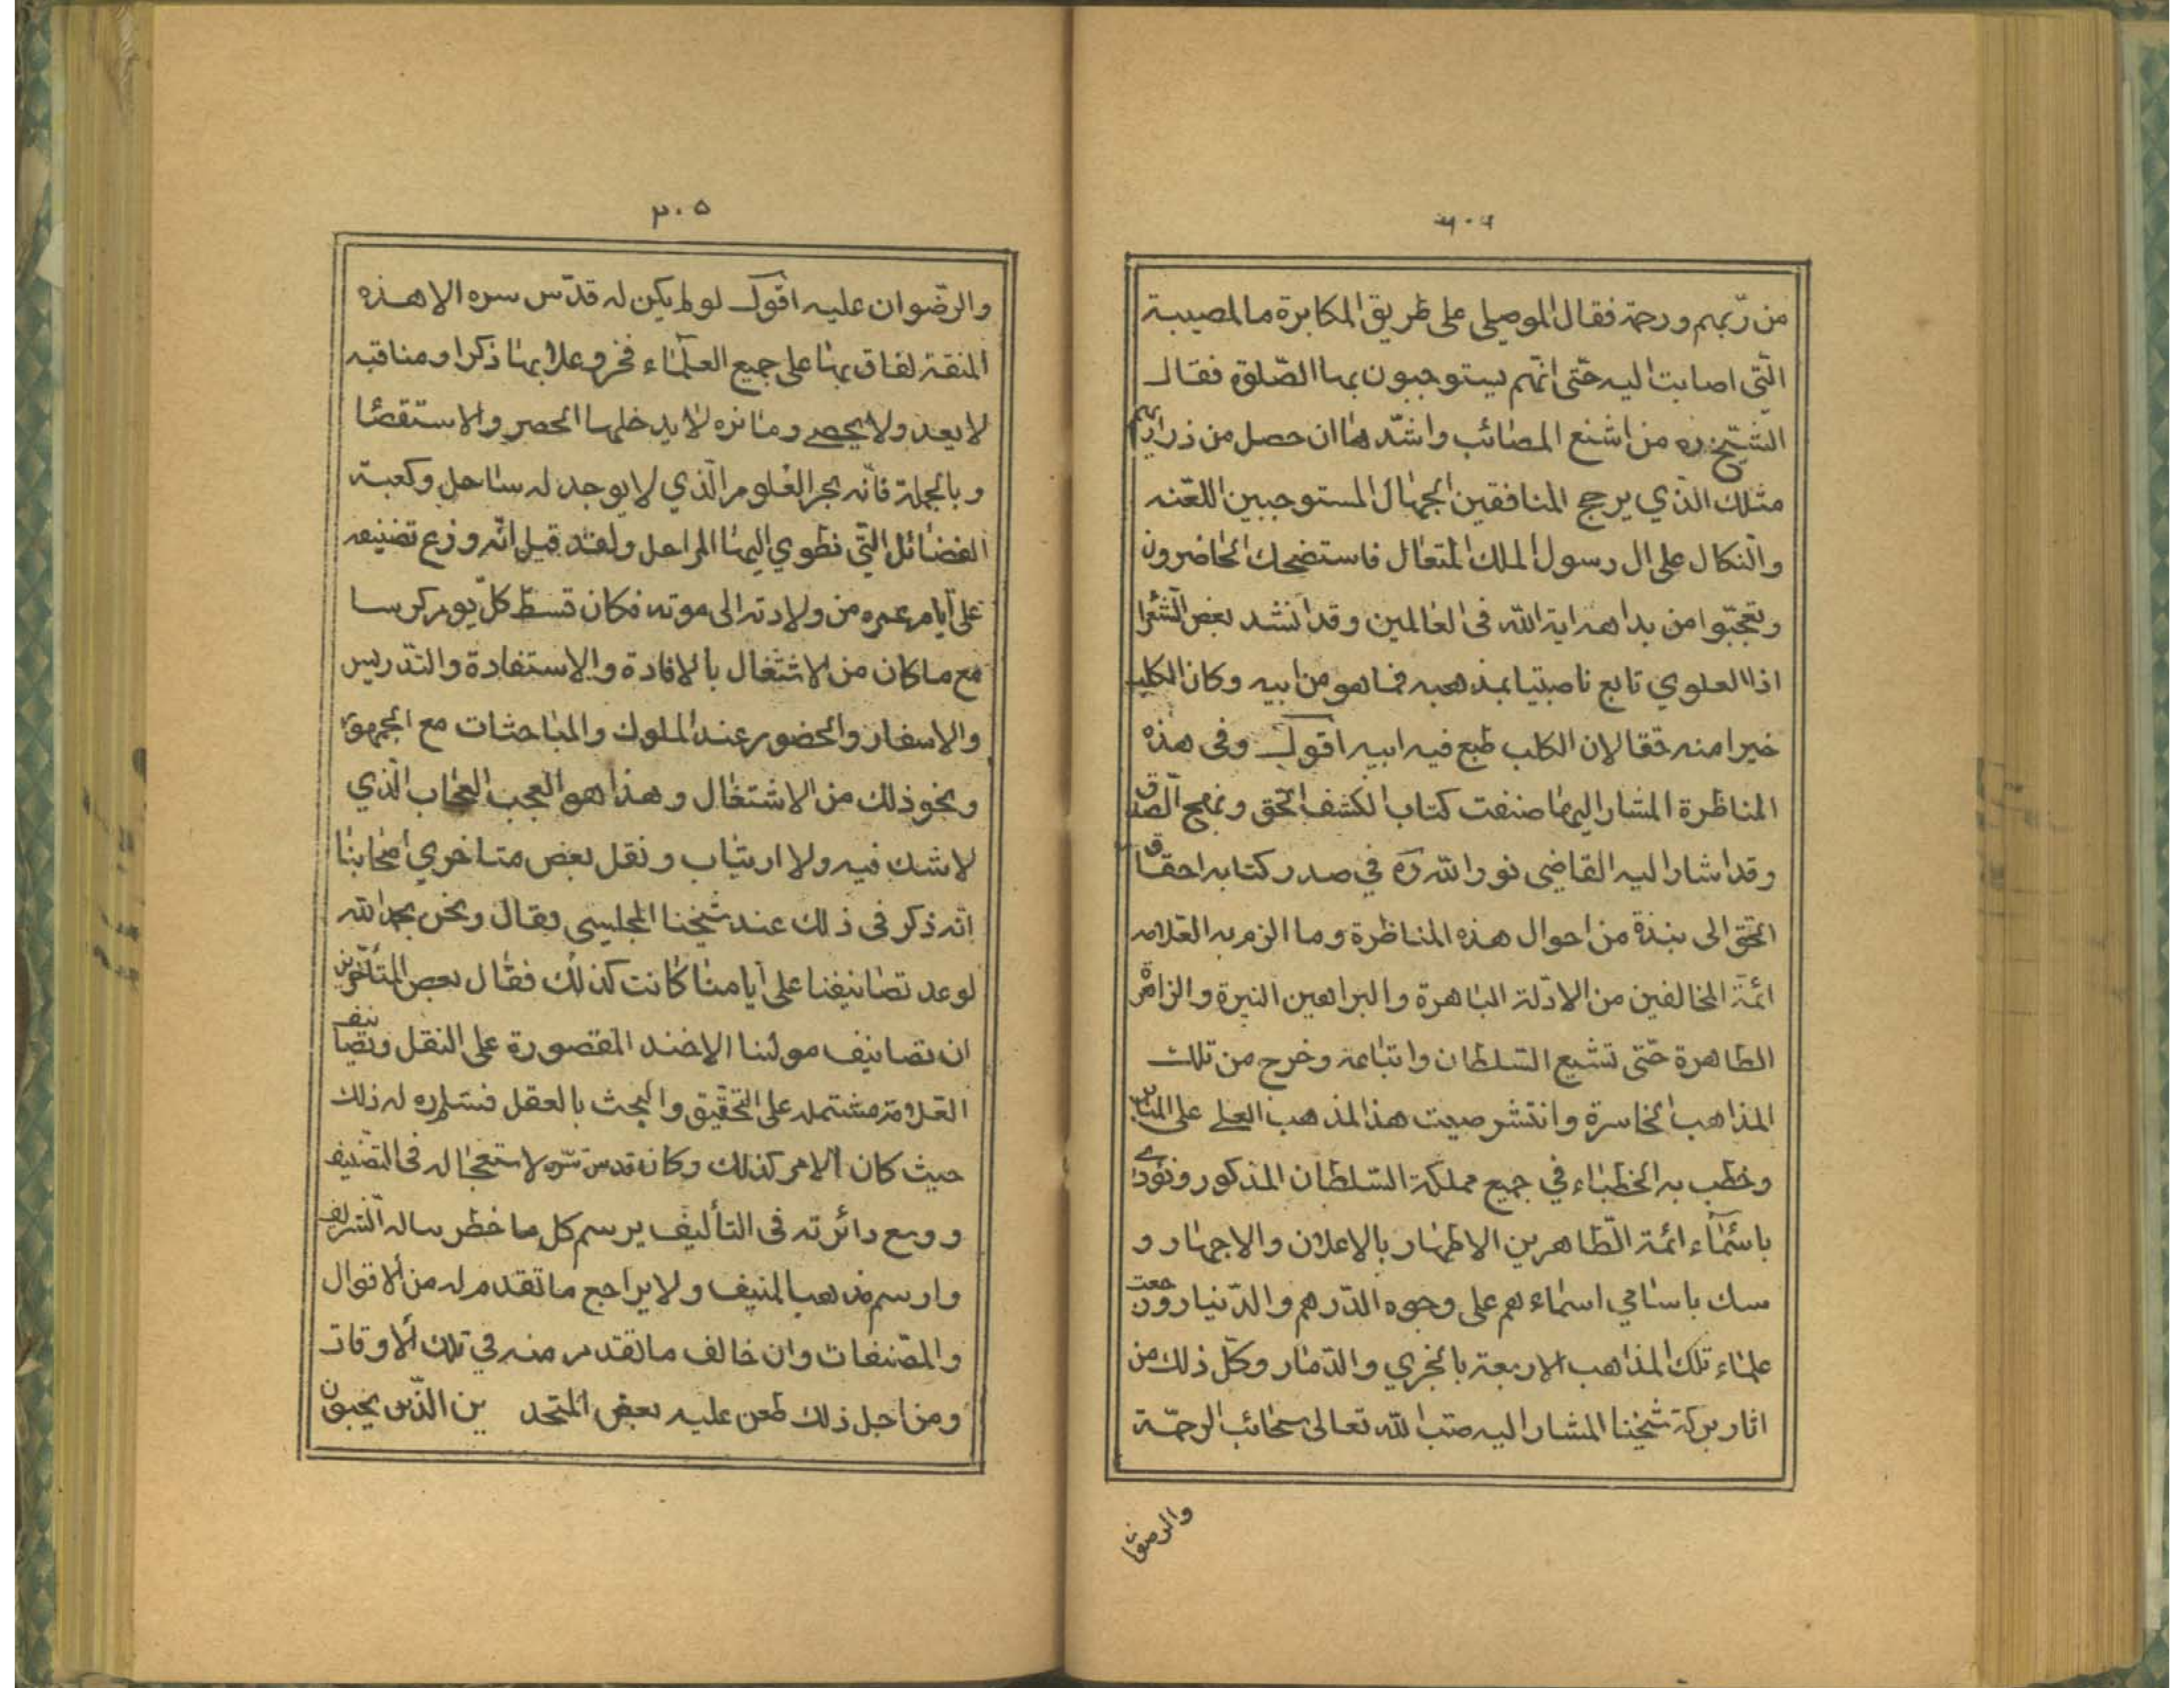 ۲۰۴
من ربهم ورحمة فقال الموصلي على طريق المكابرة ما المصيبة
الّتي اصابت اليه حتّى انّهم يستوجبون بها الصّلوة فقال
الشّيخ ره من اشنع المصائب واشدّها ان حصل من ذراريهم
مثلك الّذي يرجح المنافقين الجهال المستوجبين اللعنه
والنكال على ال رسول الملك المتعال فاستضحك الحاضرون
وتعجّبوا من بداهه اية الله فى العالمين وقد انشد بعض الشّعرا
اذا العلوي تابع ناصبتيا بمذهبه فماهو من ابيه وكان الكلب
خيرا منه حقا لان الكلب طبع فيه ابيه اقول وفى هذه
المناظرة المشار اليها صنفت كتاب الكشف الحق ونهج الصّدق
وقد اشار اليه القاضى نور الله ره في صدر كتابه احقاق
الحق الى بنذة من احوال هذه المناظرة وما الزم به العلامه
ائمّة المخالفين من الادّلة الباهرة والبراهين النيرة والزامرّة
الظاهرة حتّى تشيع السّلطان واتباعه وخرج من تلك
المذاهب الخاسرة وانتشر صيت هذا المذهب العلے على المنابر
وخطب به الخطباء في جميع مملكة السّلطان المذكور ونودے
باسمآء ائمة الطّاهرين الاطهار بالاعلان والاجهار و
سك باسامي اسماءهم على وجوه الدّرهم والدّنيار ورجعت
علماء تلك المذاهب الاربعة بالخزي والدّمار وكلّ ذلك من
اثار بركة شيخنا المشار اليه صبّ الله تعالى سحائب الرحمّة
والرضوان
۲۰۵
والرّضوان عليه اقول لو لم يكن له قدّس سره الا هذه
المنقة لفاق بها على جميع العلمآء فخر وعلا بها ذكرا ومناقبه
لا يعد ولا يحصے وماثره لا يدخلها الحصر والاستقصا
وبالجملة فانّه بحر العلوم الّذي لا يوجد له ساحل وكعبة
الفضائل التّي نطوي اليها المراحل ولقد قيل انّه وزع تضنيفه
على ايام عمره من ولادته الى موته فكان قسط كلّ يوم كرسا
مع ما كان من الاشتغال بالافادة والاستفادة والتدريس
والاسفار والحضور عند الملوك والمباحثات مع الجمهور
ونحو ذلك من الاشتغال وهذا هو العجب العجاب الّذي
لا شك فيه ولا ارتياب ونقل بعض متاخري اصحابنا
انّه ذكر فى ذلك عند شيخنا المجليسى فقال ونحن بحمد الله
لو عد تصانيفنا على ايامنا كانت كذلك فقال بعض المتأخّرين
ان تصانيف مولٰنا الاخند المقصورة على النقل وتصانيف
العّلامّة مشتمله على التحقيق والبحث بالعقل فسّلم ره له ذلك
حيث كان الامر كذلك وكان قدس سّره لاستعجاله فى التصنيف
ووسع دائرته فى التأليف يرسم كل ما خطر بباله الشريف
وارسم مذهب المنيف ولا يراجع ما تقدم له من الاقوال
والمصّنفات وان خالف ما تقدم منه في تلك الاوقات
ومن اجل ذلك طعن عليه بعض المتحد ين الذّين يحبون